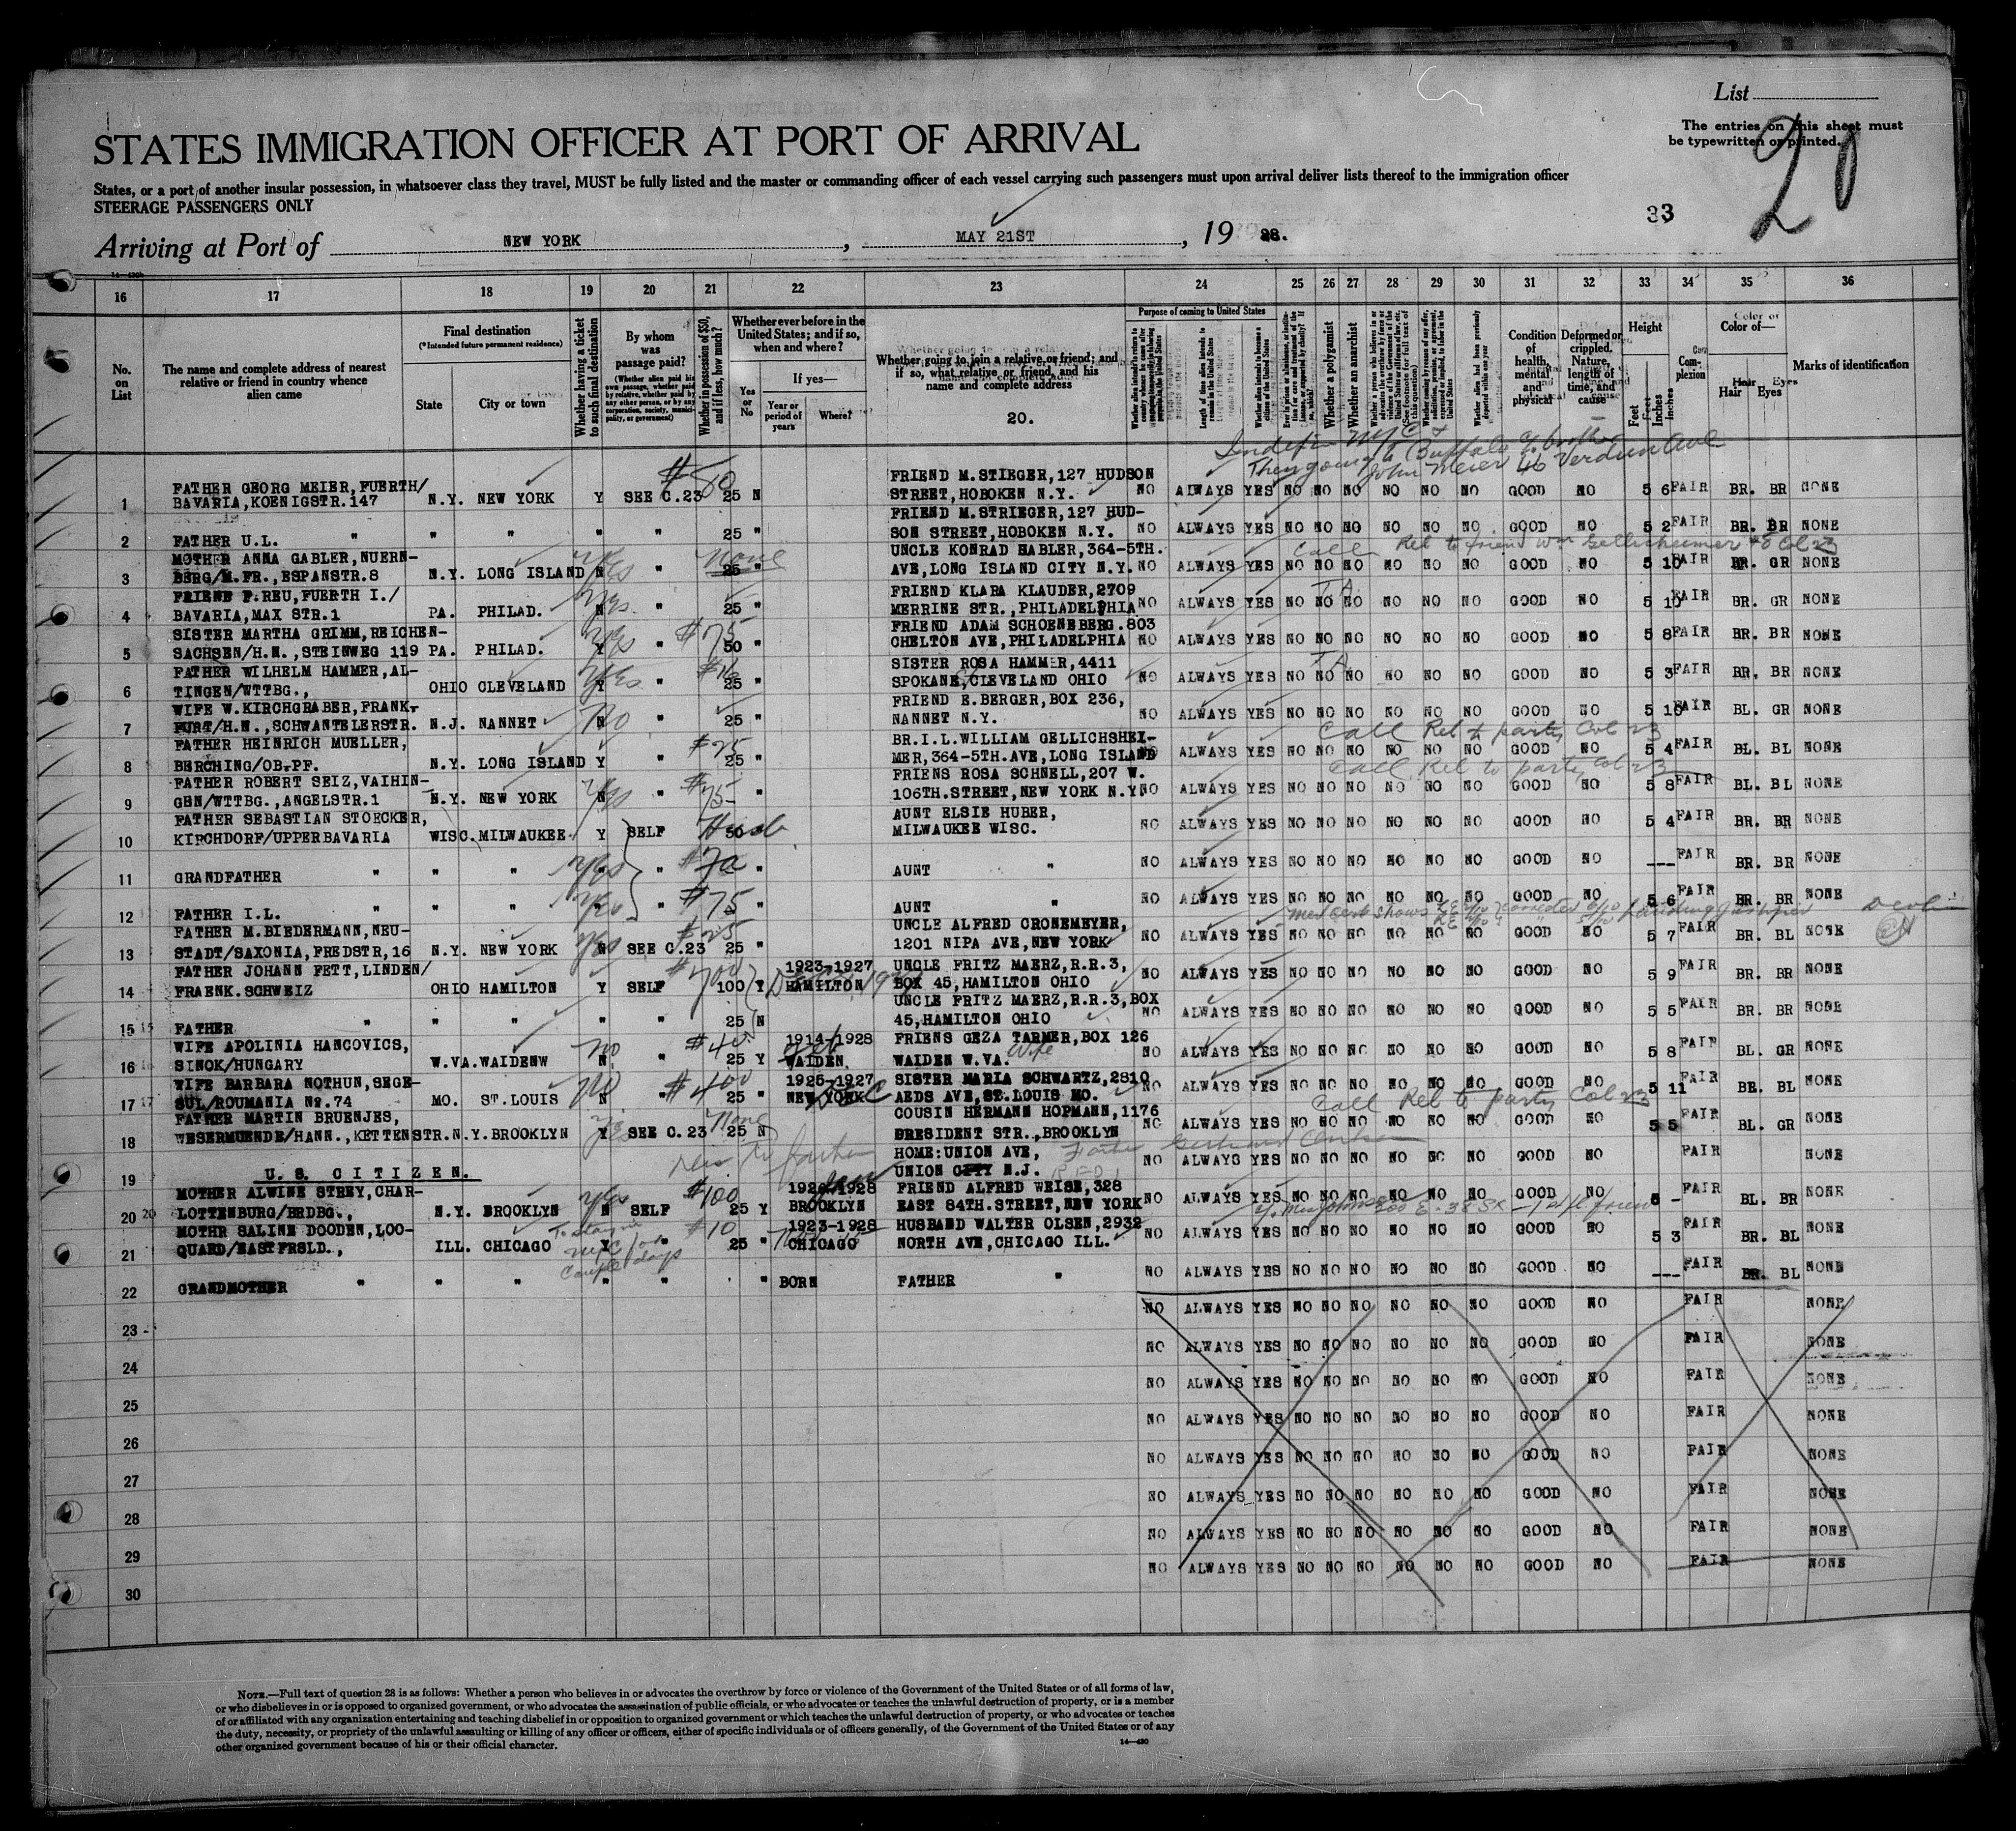 List
The entries on this sheet must
be typewritten or printed.
20
STATES IMMIGRATION OFFICER AT PORT OF ARRIVAL
States, or a port of another insular possession, in whatsoever class they travel, MUST be fully listed and the master or commanding officer of each vessel carrying such passengers must upon arrival deliver lists thereof to the immigration officer
STEERAGE PASSENGERS ONLY
33
Arriving at Port of NEW YORK, MAY 21ST, 19 28.
16 17 18 19 20 21 22 23 24 25 26 27 28 29 30 31 32 33 34 35 36
No. on List
The name and complete address of nearest relative or friend in country whence alien came
Final destination
(*Intended future permanent residence)
State
City or town
Whether having a ticket to such final destination
By whom was passage paid?
(Whether alien paid his own passage, whether paid by relative, whether paid by any other person, or by any corporation, society, municipality, or government)
Whether in possession of $50, and if less, how much?
Whether ever before in the United States; and if so, when and where?
Yes or No
If yes—
Year or period of years
Where?
Whether going to join a relative or friend; and if so, what relative or friend, and his name and complete address
20.
Purpose of coming to United States
Length of time alien intends to remain in the United States
Whether a polygamist
Whether an anarchist
Condition of health, mental and physical
Deformed or crippled. Nature, length of time, and cause
Height
Feet
Inches
Complexion
Color of—
Hair
Eyes
Marks of identification
Then going to Buffalo
John Meier 46 Verdun Ave
1 FATHER GEORG MEIER, FUERTH/ BAVARIA, KOENIGSTR.147 N.Y. NEW YORK Y SEE C.23 $80 25 N FRIEND M.STIEGER, 127 HUDSON STREET, HOBOKEN N.Y. NO ALWAYS YES NO NO NO NO NO NO GOOD NO 5 6 FAIR BR. BR NONE
2 FATHER U.L. " " " " " 25 " FRIEND M.STRIEGER, 127 HUDSON STREET, HOBOKEN N.Y. NO ALWAYS YES NO NO NO NO NO NO GOOD NO 5 2 FAIR BR. BR NONE
Call Rel to friend Wm Gellisheimer Col 23
3 MOTHER ANNA GABLER, NUERNBERG/M.FR., ESPANSTR.8 N.Y. LONG ISLAND N yes " None 25 " UNCLE KONRAD HABLER, 364-5TH. AVE, LONG ISLAND CITY N.Y. NO ALWAYS YES NO NO NO NO NO NO GOOD NO 5 10 FAIR BR. GR NONE
4 FRIEND P.REU, FUERTH I./ BAVARIA, MAX STR.1 PA. PHILAD. N yes " 25 " FRIEND KLARA KLAUDER, 2709 MERRINE STR., PHILADELPHIA NO ALWAYS YES NO NO NO NO NO NO GOOD NO 5 10 FAIR BR. GR NONE
5 SISTER MARTHA GRIMM, REICHENSACHSEN/H.N., STEINWEG 119 PA. PHILAD. Y yes " $75 50 " FRIEND ADAM SCHOENEBERG.803 CHELTON AVE, PHILADELPHIA NO ALWAYS YES NO NO NO NO NO NO GOOD NO 5 8 FAIR BR. BR NONE
6 FATHER WILHELM HAMMER, ALTINGEN/WTTBG., OHIO CLEVELAND Y yes " 25 " SISTER ROSA HAMMER, 4411 SPOKANE, CLEVELAND OHIO NO ALWAYS YES NO NO NO NO NO NO GOOD NO 5 3 FAIR BR. BR NONE
7 WIFE W.KIRCHGRABER, FRANKFURT/H.N., SCHWANTELERSTR. N.J. NANNET N No " 25 " FRIEND E.BERGER, BOX 236, NANNET N.Y. NO ALWAYS YES NO NO NO NO NO NO GOOD NO 5 10 FAIR BL. GR NONE
Call Rel to party Col 23
8 FATHER HEINRICH MUELLER, BERCHING/OB.PF. N.Y. LONG ISLAND Y " $25 25 " BR.I.L.WILLIAM GELLICHSHEIMER, 364-5TH.AVE, LONG ISLAND NO ALWAYS YES NO NO NO NO NO NO GOOD NO 5 4 FAIR BL. BL NONE
Call Rel to party Col 23
9 FATHER ROBERT SEIZ, VAIHINGEN/WTTBG., ANGELSTR.1 N.Y. NEW YORK N yes " $75 " FRIENS ROSA SCHNELL, 207 W. 106TH.STREET, NEW YORK N.Y. NO ALWAYS YES NO NO NO NO NO NO GOOD NO 5 8 FAIR BL. BL NONE
10 FATHER SEBASTIAN STOECKER, KIRCHDORF/UPPERBAVARIA WISC. MILWAUKEE Y SELF 50 AUNT ELSIE HUBER, MILWAUKEE WISC. NO ALWAYS YES NO NO NO NO NO NO GOOD NO 5 4 FAIR BR. BR NONE
11 GRANDFATHER " " " yes " " AUNT " NO ALWAYS YES NO NO NO NO NO NO GOOD NO --- FAIR BR. BR NONE
12 FATHER I.L. " " " yes " $75 " AUNT " NO ALWAYS YES NO NO NO NO NO NO GOOD NO 5 6 FAIR BR. BR NONE
13 FATHER M.BIEDERMANN, NEUSTADT/SAXONIA, FREDSTR,16 N.Y. NEW YORK N yes SEE C.23 $25 25 " UNCLE ALFRED CRONEMEYER, 1201 NIPA AVE, NEW YORK NO ALWAYS YES NO NO NO NO NO NO GOOD NO 5 7 FAIR BR. BL NONE
14 FATHER JOHANN FETT, LINDEN/ FRAENK.SCHWEIZ OHIO HAMILTON Y SELF 100 Y 1923-1927 HAMILTON UNCLE FRITZ MAERZ, R.R.3, BOX 45, HAMILTON OHIO NO ALWAYS YES NO NO NO NO NO NO GOOD NO 5 9 FAIR BR. BR NONE
15 FATHER " " " " " 25 N UNCLE FRITZ MAERZ, R.R.3, BOX 45, HAMILTON OHIO NO ALWAYS YES NO NO NO NO NO NO GOOD NO 5 5 FAIR BR. BR NONE
16 WIFE APOLINIA HANCOVICS, SINOK/HUNGARY W.VA. WAIDENW N no " 25 Y 1914-1928 WAIDEN. FRIENS GEZA TARMER, BOX 126 WAIDEN W.VA. Wife NO ALWAYS YES NO NO NO NO NO NO GOOD NO 5 8 FAIR BL. GR NONE
17 WIFE BARBARA NOTHUN, SEGESUL/ROUMANIA No.74 MO. ST.LOUIS N no " $400 25 " 1925-1927 NEW YORK Dec SISTER MARIA SCHWARTZ, 2810 AEDS AVE, ST.LOUIS MO. NO ALWAYS YES NO NO NO NO NO NO GOOD NO 5 11 FAIR BR. BL NONE
Call Rel to party Col 23
18 FATHER MARTIN BRUENJES, WESERMUENDE/HANN., KETTENSTR. N.Y. BROOKLYN Y yes SEE C.23 None 25 N COUSIN HERMANN HOPMANN, 1176 PRESIDENT STR., BROOKLYN NO ALWAYS YES NO NO NO NO NO NO GOOD NO 5 5 FAIR BL. GR NONE
19 U.S. CITIZEN. HOME: UNION AVE, UNION CITY N.J. NO ALWAYS YES NO NO NO NO NO NO GOOD NO FAIR NONE
20 MOTHER ALWINE STREY, CHARLOTTENBURG/BRDBG., N.Y. BROOKLYN N yes SELF $100 25 Y 1926-1928 BROOKLYN FRIEND ALFRED WEISE, 328 EAST 84TH.STREET, NEW YORK NO ALWAYS YES NO NO NO NO NO NO GOOD NO 5 - FAIR BL. BR NONE
21 MOTHR SALINE DOODEN, LOOQUARD/EASTFRSLD., ILL. CHICAGO Y " $10 25 " 1923-1928 CHICAGO HUSBAND WALTER OLSEN, 2932 NORTH AVE, CHICAGO ILL. NO ALWAYS YES NO NO NO NO NO NO GOOD NO 5 3 FAIR BR. BL NONE
22 GRANDMOTHER " " " " " " BORN FATHER " NO ALWAYS YES NO NO NO NO NO NO GOOD NO --- FAIR BR. BL NONE
23 NO ALWAYS YES NO NO NO NO NO NO GOOD NO FAIR NONE
24 NO ALWAYS YES NO NO NO NO NO NO GOOD NO FAIR NONE
25 NO ALWAYS YES NO NO NO NO NO NO GOOD NO FAIR NONE
26 NO ALWAYS YES NO NO NO NO NO NO GOOD NO FAIR NONE
27 NO ALWAYS YES NO NO NO NO NO NO GOOD NO FAIR NONE
28 NO ALWAYS YES NO NO NO NO NO NO GOOD NO FAIR NONE
29 NO ALWAYS YES NO NO NO NO NO NO GOOD NO FAIR NONE
30 NO ALWAYS YES NO NO NO NO NO NO GOOD NO FAIR NONE
NOTE.—Full text of question 28 is as follows: Whether a person who believes in or advocates the overthrow by force or violence of the Government of the United States or of all forms of law,
or who disbelieves in or is opposed to organized government, or who advocates the assassination of public officials, or who advocates or teaches the unlawful destruction of property, or is a member
of or affiliated with any organization entertaining and teaching disbelief in or opposition to organized government or which teaches the unlawful destruction of property, or who advocates or teaches
the duty, necessity, or propriety of the unlawful assaulting or killing of any officer or officers, either of specific individuals or of officers generally, of the Government of the United States or of any
other organized government because of his or their official character.
14—430